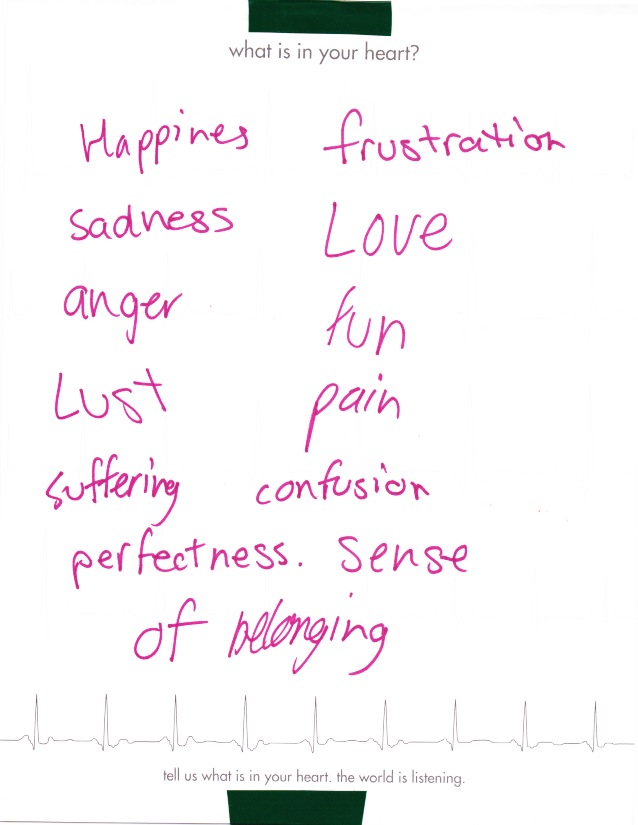 what is in your heart?
Happines frustration
sadness Love
anger fun
Lust pain
suffering confusion
perfectness. Sense
of belonging
tell us what is in your heart. the world is listening.